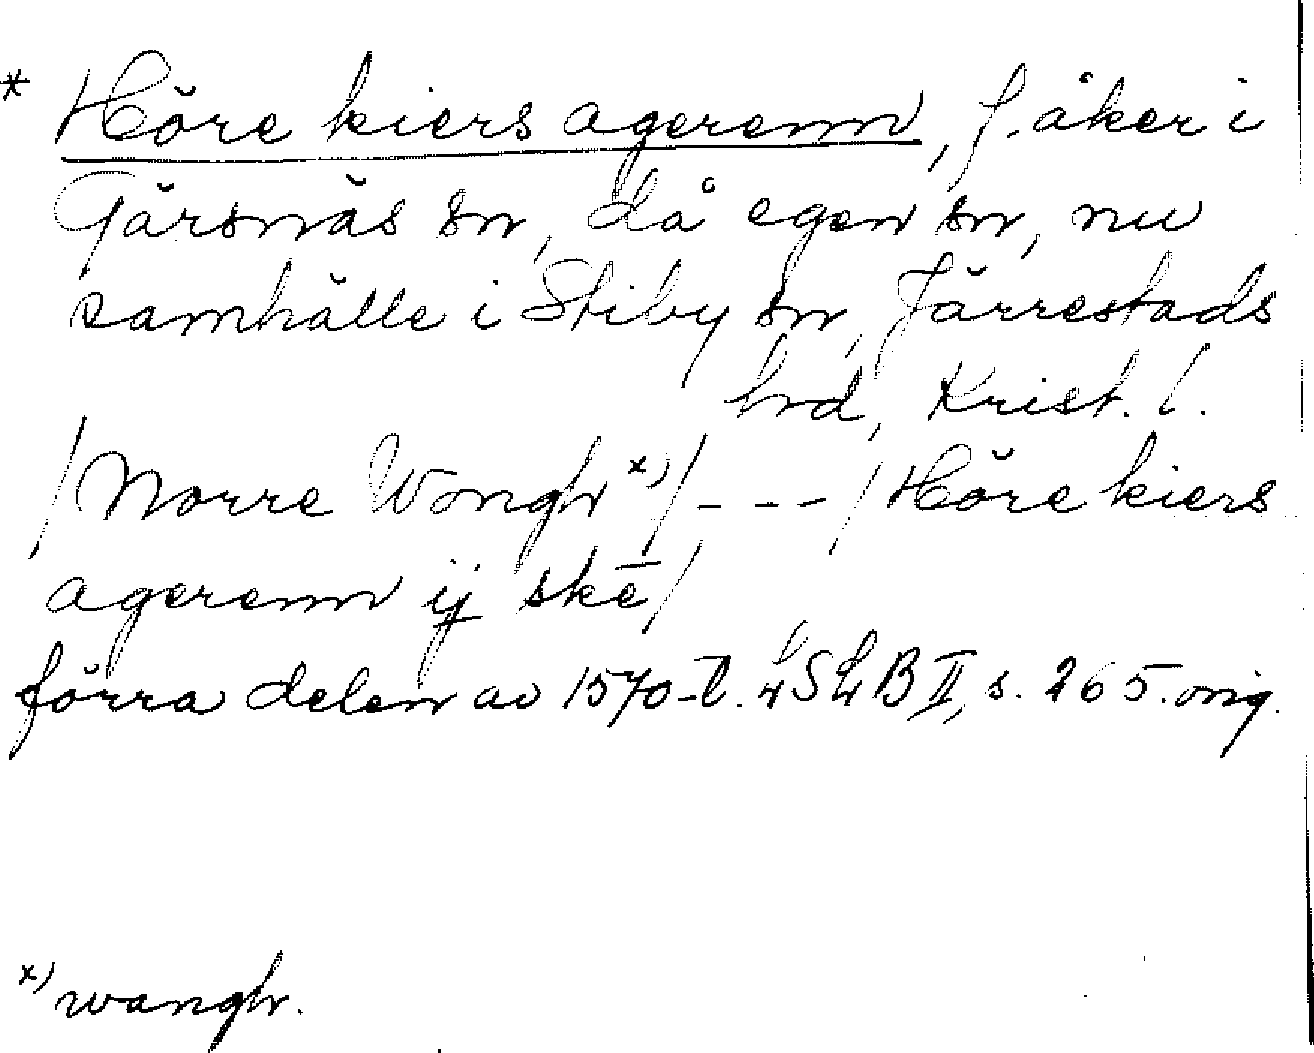 * Höre kiers agerenn, f. åker i
Gärsnäs sn, då egen sn, nu
samhälle i Stiby sn, Järrestads
hrd, Krist. l.
/Norre Wongh x)/ - - - /Höre kiers
agerenn ij skē/
förra delen av 1570-t. LSLB II, s. 265. orig.
x) wangh.